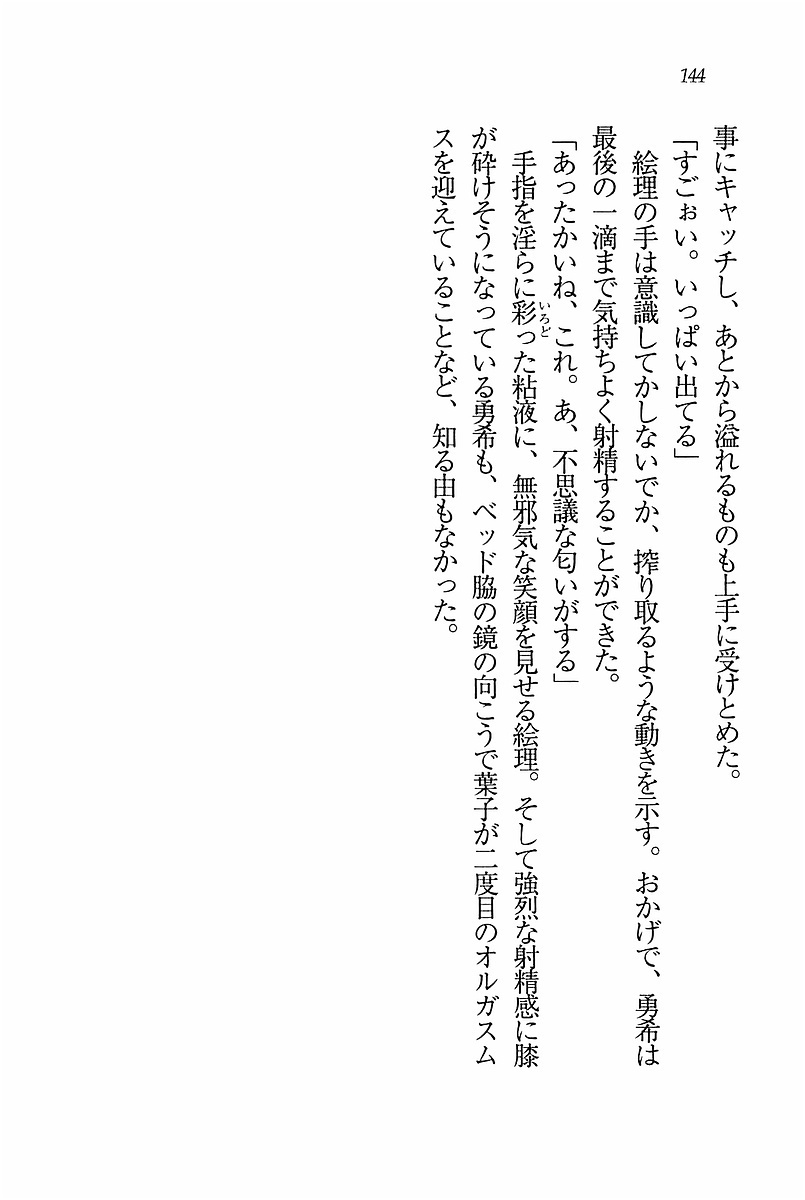 144
事にキャッチし、あとから溢れるものも上手に受けとめた。
「すごぉい。いっぱい出てる」
絵理の手は意識してかしないでか、搾り取るような動きを示す。おかげで、勇希は
最後の一滴まで気持ちよく射精することができた。
「あったかいね、これ。あ、不思議な匂いがする」
手指を淫らに彩った粘液に、無邪気な笑顔を見せる絵理。そして強烈な射精感に膝
いろど
が砕けそうになっている勇希も、ベッド脇の鏡の向こうで葉子が二度目のオルガスム
スを迎えていることなど、知る由もなかった。